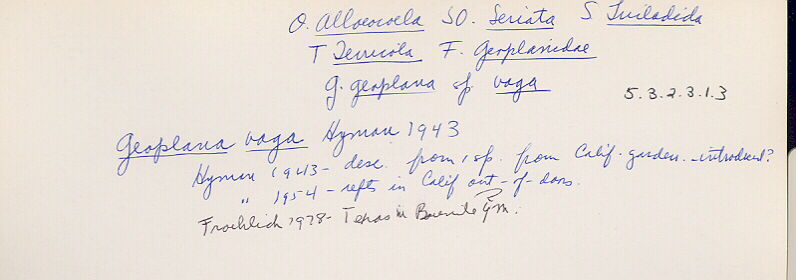 O. Alloeocoela SO. Seriata S Tricladida
T Terricola F. Geoplanidae
G. geoplana sp. vaga
5.3.2.3.1.3
Geoplana vaga Hyman 1943
Hyman 1943 - desc. from 1 sp. from Calif. garden. - introduced?
" 1954 - repts in Calif out-of-doors.
Froehlich 1978 - Texas in